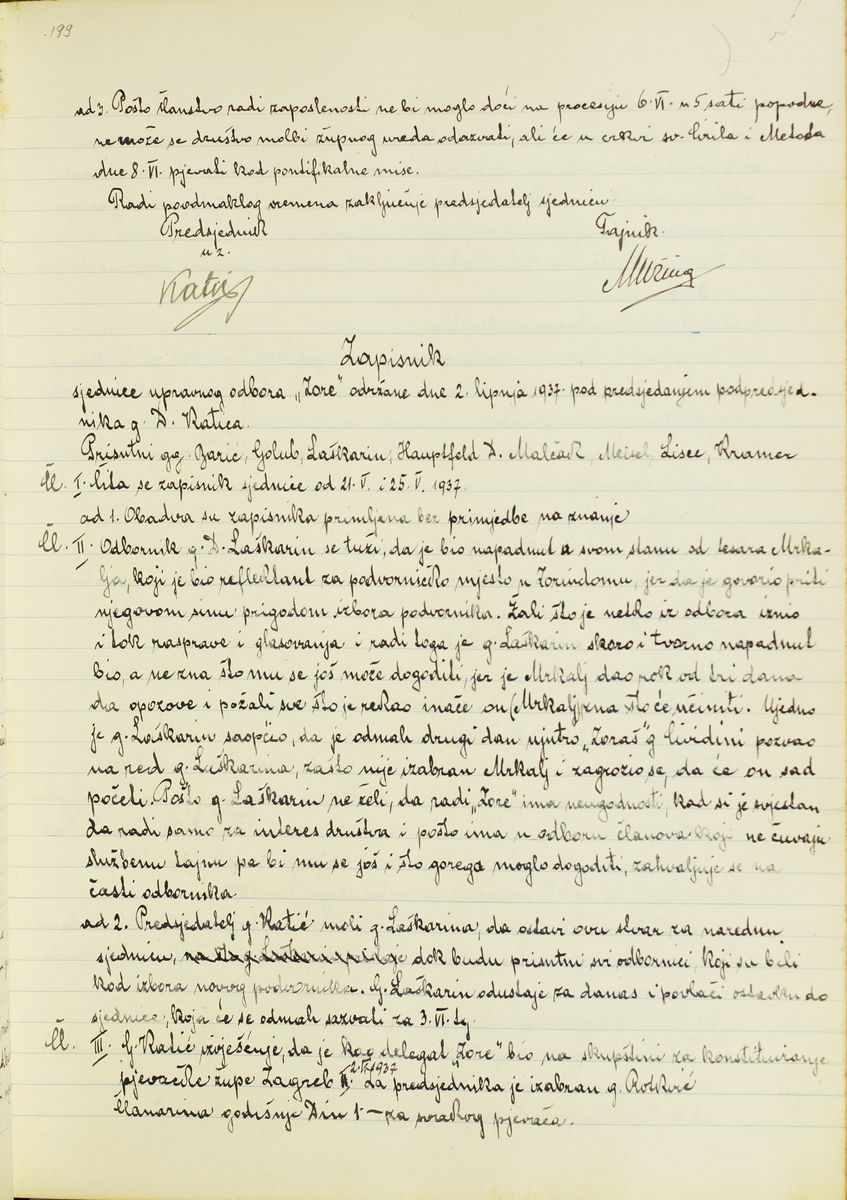 199
ad 3. Pošto članstvo radi zaposlenosti ne bi moglo doći na procesiju 6.VI. u 5 sati popodne,
ne može se društvo molbi župnog ureda odazvati, ali će u crkvi sv. Ćirila i Metoda
dne 8.VI. pjevati kod pontifikalne mise.
Radi poodmaklog vremena zaključuje predsjedatelj sjednicu.
Predsjednik Tajnik.
u z.
Katić
Zapisnik
sjednice upravnog odbora „Zore" održane dne 2. lipnja 1937. pod predsjedanjem podpredsjed-
nika g. D. Katića.
Prisutni gg. Barić, Golub, Laškarin, Hauptfeld D. Malčak, Meisel, Lisec, Kramer
Čl. I. Čita se zapisnik sjednice od 21.V. i 25.V. 1937.
ad 1. Obadva su zapisnika primljena bez primjedbe na znanje
Čl. II. Odbornik g. D. Laškarin se tuži, da je bio napadnut u svom stanu od tesara Mrka-
lja, koji je bio reflektant za podvorničko mjesto u Zorindomu, jer da je govorio proti
njegovom sinu prigodom izbora podvornika. Žali što je netko iz odbora iznio
i tok rasprave i glasovanja i radi toga je g. Laškarin skoro i tvorno napadnut
bio, a ne zna što mu se još može dogoditi, jer je Mrkalj dao rok od tri dana
da opozove i požali sve što je rekao inače on (Mrkalj) zna što će učiniti. Ujedno
je g. Laškarin saopćio, da je odmah drugi dan ujutro „Zoraš" g. Cividini pozvao
na red g. Laškarina, zašto nije izabran Mrkalj i zagrozio se, da će on sad
početi. Pošto g. Laškarin ne želi, da radi „Zore" ima neugodnosti, kad si je svjestan
da radi samo za interes društva i pošto ima u odboru članova koji ne čuvaju
službenu tajnu pa bi mu se još i što gorega moglo dogoditi, zahvaljuje se na
časti odbornika
ad 2. Predsjedatelj g. Katić moli g. Laškarina, da ostavi ovu stvar za narednu
sjednicu, dok budu prisutni svi odbornici, koji su bili
kod izbora novog podvornika. G. Laškarin odustaje za danas i povlači ostavku do
sjednice, koja će se odmah sazvati za 3.VI. tg.
Čl. III. G. Katić izvješćuje, da je kao delegat „Zore" bio na skupštini za konstituiranje
pjevačke župe Zagreb II. 2.VI.1937 Za predsjednika je izabran g. Rotkvić
Članarina godišnje Din 1 — za svakog pjevača.